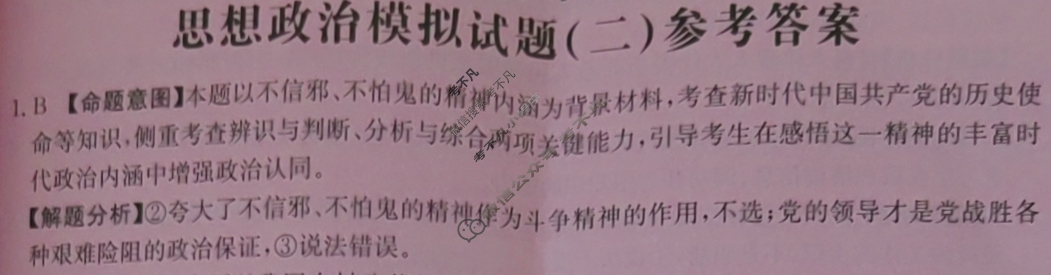 思想政治模拟试题(二)参考答案
1. B 【命题意图】本题以不信邪、不怕鬼的精神内涵为背景材料,考查新时代中国共产党的历史使
命等知识,侧重考查辨识与判断、分析与综合两项关键能力,引导考生在感悟这一精神的丰富时
代政治内涵中增强政治认同。
【解题分析】②夸大了不信邪、不怕鬼的精神作为斗争精神的作用,不选;党的领导才是党战胜各
种艰难险阻的政治保证,③说法错误。